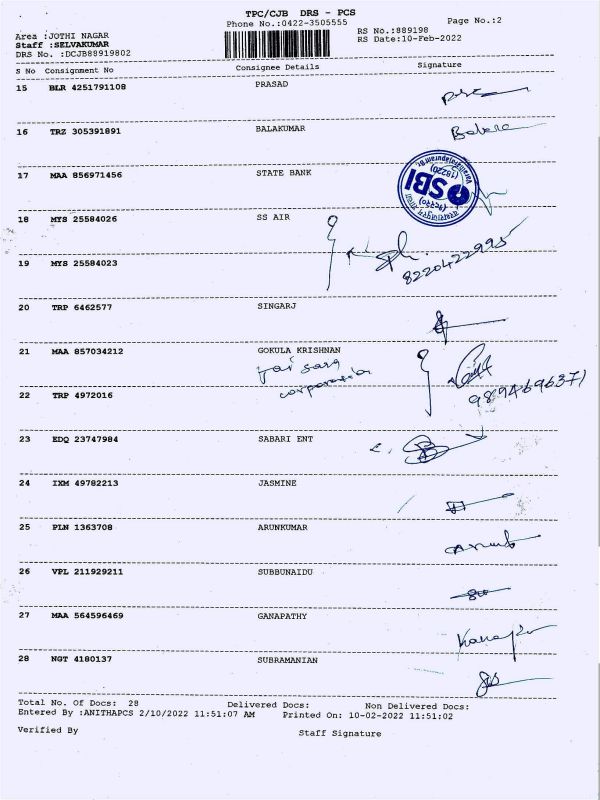 TPC/CJB DRS - PCS
Phone No.:0422-3505555 Page No.:2
Area :JOTHI NAGAR RS No.:889198
Staff :SELVAKUMAR RS Date:10-Feb-2022
DRS No. :DCJB88919802
S No Consignment No Consignee Details Signature
15 BLR 4251791108 PRASAD
16 TRZ 305391891 BALAKUMAR
17 MAA 856971456 STATE BANK
SBI
(18220)
18 MYS 25584026 SS AIR
ph.
8220422995
19 MYS 25584023
20 TRP 6462577 SINGARJ
21 MAA 857034212 GOKULA KRISHNAN
corporation
9894696371
22 TRP 4972016
23 EDQ 23747984 SABARI ENT
24 IXM 49782213 JASMINE
25 PLN 1363708 ARUNKUMAR
26 VPL 211929211 SUBBUNAIDU
27 MAA 564596469 GANAPATHY
28 NGT 4180137 SUBRAMANIAN
Total No. Of Docs: 28 Delivered Docs: Non Delivered Docs:
Entered By :ANITHAPCS 2/10/2022 11:51:07 AM Printed On: 10-02-2022 11:51:02
Verified By Staff Signature